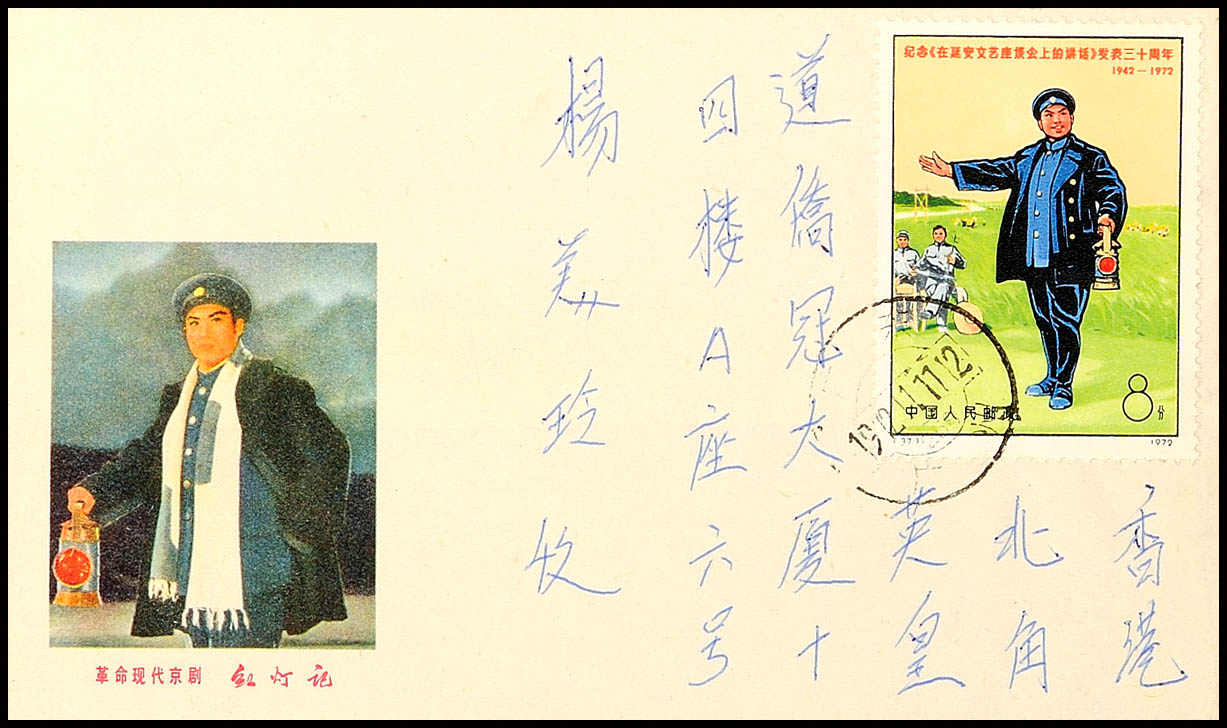 香港
北角
英皇
道僑冠大厦十
四楼A座六号
楊美玲收
纪念《在延安文艺座谈会上的讲话》发表三十周年
1942—1972
中国人民邮政
8分
1972
革命现代京剧 红灯记